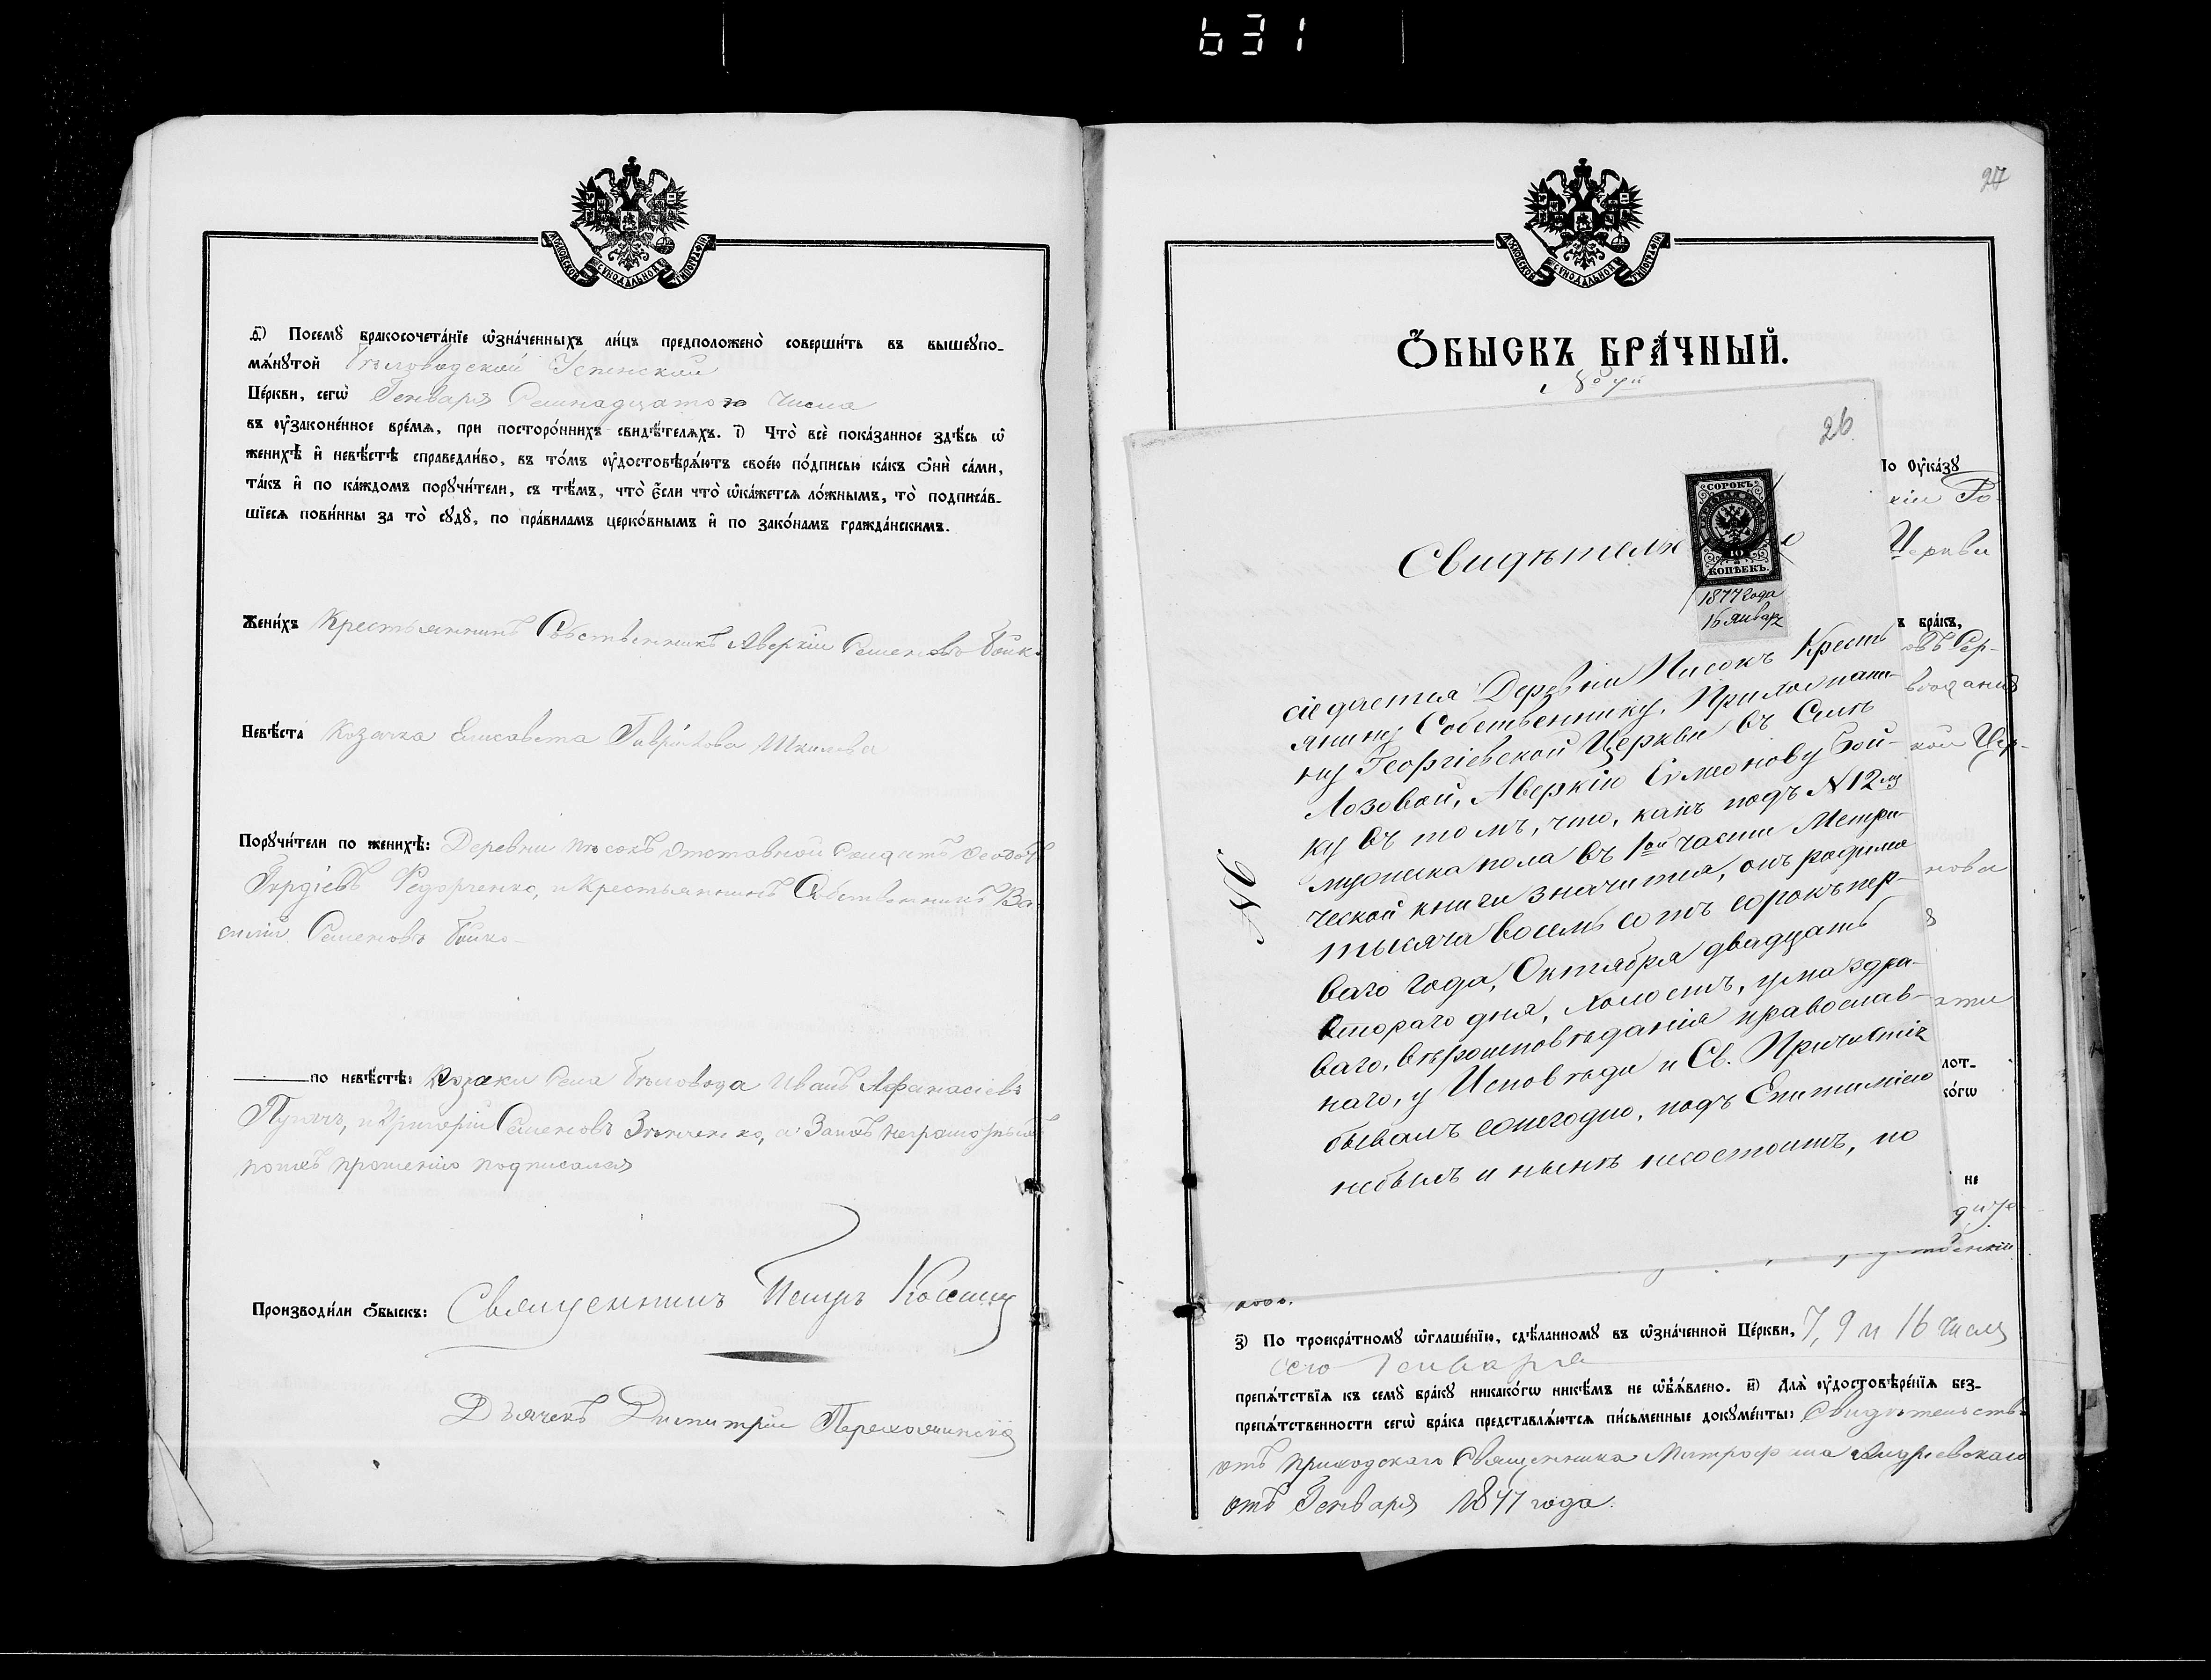 631
МОСКОВСКОЙ СУНОДАЛЬНОЙ ТИПОГРАФІИ
Ѳ҃) Посемꙋ̀ бракосочета́нїе ѡ҆зна́ченныхъ ли́цъ предположено̀ соверши́ть въ вышеꙋпо-
мѧ́нꙋтой Бѣловодской Успенской
Це́ркви, сегѡ̀ Генваря Семнадцатого числа
въ ᲂу҆законе́нное вре́мѧ, при посторо́ннихъ свидѣ́телѧхъ. і҃) Что̀ всѐ пока́занное здѣ́сь ѡ҆
женихѣ̀ и҆ невѣ́стѣ справедли́во, въ то́мъ ᲂу҆достовѣрѧ́ютъ свое́ю по́дписью ка́къ ѻ҆нѝ са́ми,
та́къ и҆ по ка́ждомъ порꙋчи́тели, съ тѣ́мъ, что̀ є҆́сли что̀ ѡ҆ка́жетсѧ ло́жнымъ, то̀ подписа́в-
шїесѧ пови́нны за то̀ сꙋдꙋ̀, по пра́виламъ церко́внымъ и҆ по зако́намъ гражда́нскимъ.
Жени́хъ Крестьянинъ Собственникъ Аверкій Семеновъ Бойк
Невѣ́ста Козачка Елисавета Гаврійлова
Порꙋчи́тели по женихѣ̀: Деревни Пѣсокъ отставной Солдатъ
Гордіевъ Федорченко, и Крестьянинъ Собственникъ Ва-
силій Семеновъ Бойко
по невѣ́стѣ: Козаки Села Бѣловода Иванъ Афанасіевъ
и Григорій Семеновъ Зѣнченко, а Занихъ неграмотныхъ
прошенію подписался
Производи́ли ѻ҆́быскъ: Священникъ Петръ
Дьячекъ Димитрій
27
МОСКОВСКОЙ СУНОДАЛЬНОЙ ТИПОГРАФІИ
Ѻ҆́БЫСКЪ БРА́ЧНЫЙ.
26.
СОРОКЪ
40
КОПѢЕКЪ.
1877 года
16 Январ
Свидѣтельс о
№
сіе дается Деревни Писокъ Кресть
янину Собственнику, Прихожани-
ну Георгіевской Церкви въ Селѣ
Лозовой, Аверкію Симеонову Бой-
ку въ томъ, что, какъ подъ № 12му
мужеска пола въ 1ой части Метри-
ческой книги значится, онъ родился
тысяча восемь сотъ сорокъ пер-
ваго года, Октября двадцать
втораго дня, холостъ, ума здра-
ваго, вѣроисповѣданія православ-
наго, у Исповѣди и Св. Причастія
бывалъ ежегодно, подъ Епитиміею
небылъ и нынѣ несостоитъ, но
По ᲂу҆ка́зꙋ
Церкви
ъ бра́къ,
кой Цер-
нова
лот-
ко́гѡ
не
з҃) По троекра́тномꙋ ѡ҆глаше́нїю, сдѣ́ланномꙋ въ ѡ҆зна́ченной Це́ркви, 7, 9 и 16 числ
сего Генваря
препѧ́тствїѧ къ семꙋ̀ бра́кꙋ никако́гѡ никѣ́мъ не ѡ҆б̾ѧ́влено. и҃) Длѧ̀ ᲂу҆достовѣре́нїѧ без-
препѧ́тственности сегѡ̀ бра́ка представлѧ́ютсѧ пи́сьменные докꙋме́нты: Свидѣтельств
отъ приходскаго Священника Митрофана
отъ Генваря 1877 года.